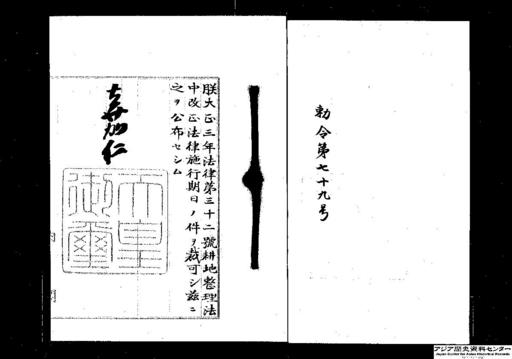 勅令第七十九号
朕大正三年法律第三十二號耕地整理法
中改正法律施行期日ノ件ヲ裁可シ茲ニ
之ヲ公布セシム
嘉仁
天皇
御璽
アジア歴史資料センター
Japan Center for Asian Historical Records